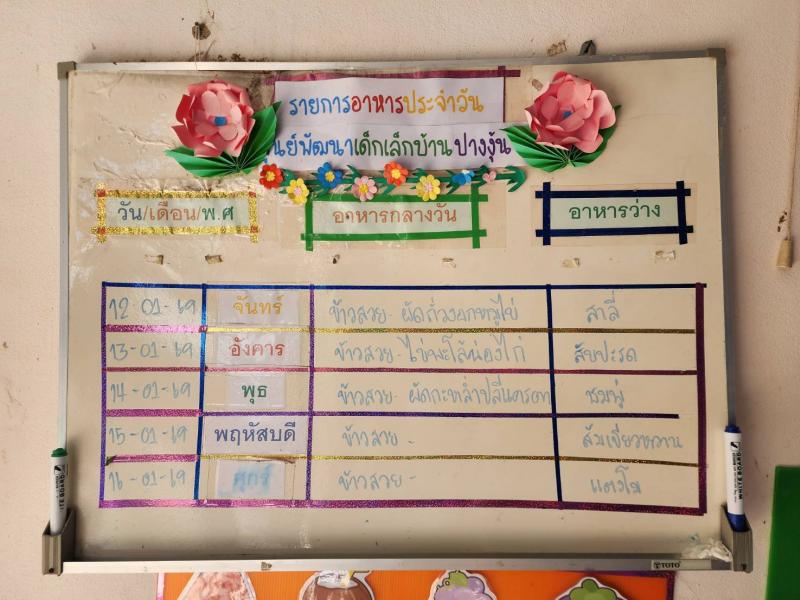 รายการอาหารประจำวัน
ศูนย์พัฒนาเด็กเล็กบ้านปางงุ้น
วัน/เดือน/พ.ศ อาหารกลางวัน อาหารว่าง
12-01-69 จันทร์ ข้าวสวย - ผัดถั่วงอกหมูไข่ สาลี่
13-01-69 อังคาร ข้าวสวย - ไข่พะโล้น่องไก่ สับปะรด
14-01-69 พุธ ข้าวสวย - ผัดกะหล่ำปลี ชมพู่
15-01-69 พฤหัสบดี ข้าวสวย - ส้มเขียวหวาน
16-01-69 ศุกร์ ข้าวสวย - แตงโม
TOTO